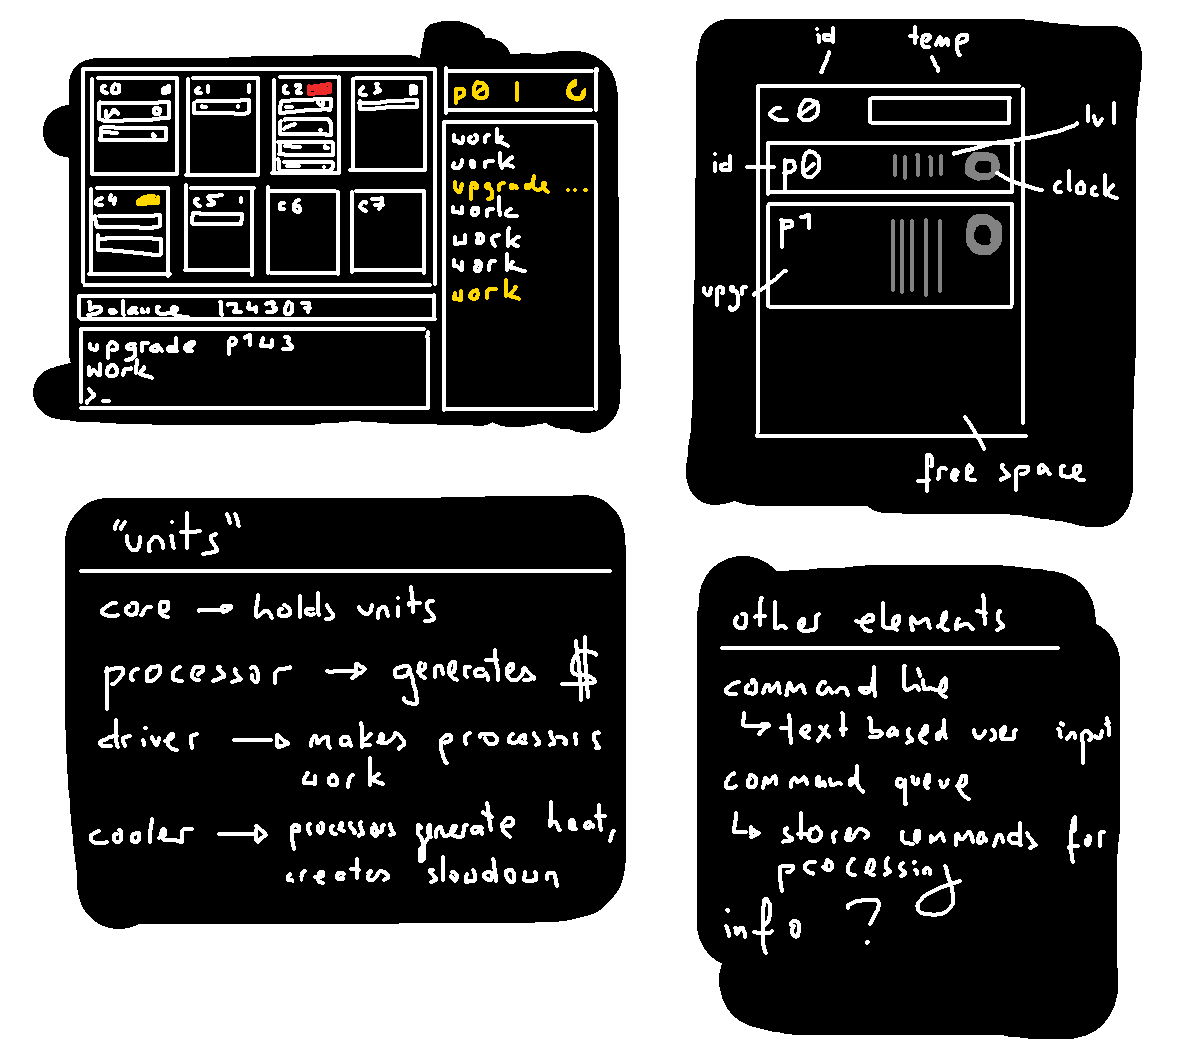 c0 0
c1 1
c2
c3 0
c4
c5 1
c6
c7
balance 124307
upgrade p143
work
>_
p0 1
work
work
upgrade ...
work
work
work
work
id
temp
c0
lvl
id
p0
clock
p1
upgr
free space
"units"
core → holds units
processor → generates $
driver → makes processors
work
cooler → processors generate heat,
creates slowdown
other elements
command line
↳ text based user input
command queue
↳ stores commands for
processing
info ?